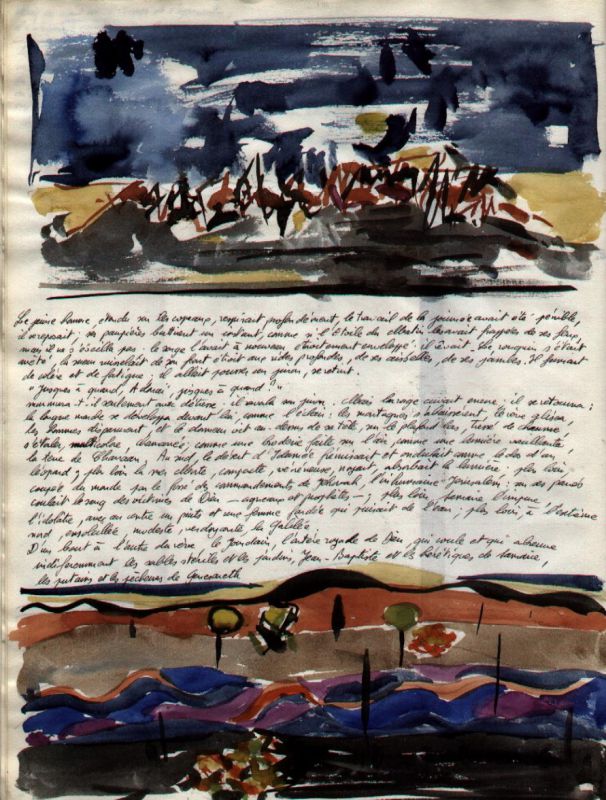 Le jeune homme, étendu sur les copeaux, respirait profondément, le travail de la journée avait été pénible,
il reposait, ses paupières battirent un instant, comme si l'étoile du matin les avait frappées de ses feux
mais il ne s'éveilla pas: le songe l'avait à nouveau étroitement enveloppé: il rêvait. Le rouquin s'était
arrêté; la sueur ruisselait de son front étroit aux rides profondes, de ses aisselles, de ses jambes. Il fumait
de colère et de fatigue. Il allait pousser un juron, se retint.
"Jusques à quand, Adonaï, jusques à quand?"
murmura-t-il seulement avec détresse: il avala un juron. Mais la rage couvait encore: il se retourna:
la longue marche se déroula devant lui, comme l'éclair: les montagnes s'abaissèrent, le rêve glissa,
les hommes disparurent, et le dormeur vit au-dessus de sa tête, sur le plafond bas, tressé de chaume
s'étaler, multicolore, chamarrée, comme une broderie faite sur l'air, comme une lumière vacillante,
la terre de Chanaan. Au sud, le désert d'Idumée frémissant et ondulant comme le dos d'un
léopard; plus loin la mer Morte, compacte, vénéneuse, noyant, absorbant la lumière; plus loin
coupée du monde par le fossé des commandements de Jéhovah, l'inhumaine Jérusalem: sur ses pavés
coulait le sang des victimes de Dieu — agneaux et prophètes —; plus loin, Samarie l'impure
l'idolâtre, avec au centre un puits et une femme fardée qui puisait de l'eau; plus loin, à l'extrême
nord, ensoleillée, modeste, verdoyante, la Galilée.
D'un bout à l'autre du rêve, le Jourdain, l'artère royale de Dieu qui coule et qui abreuve
indifféremment les sables stériles et les jardins, Jean-Baptiste et les hérétiques de Samarie,
les putains et les pêcheurs de Génésareth